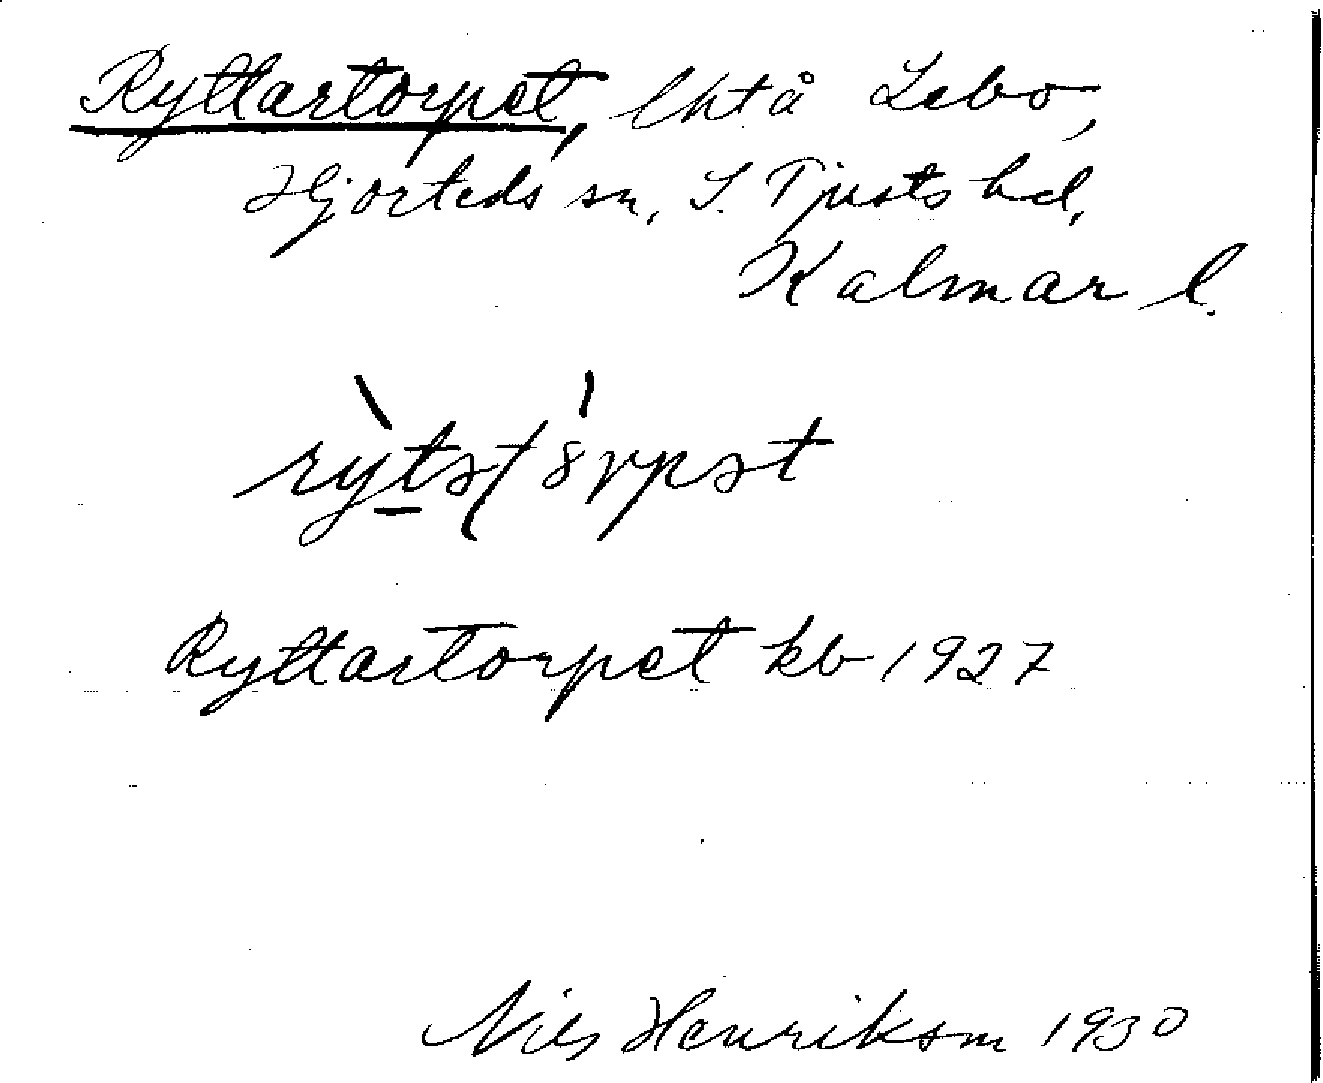 Ryttartorpet, lht å Lebo,
Hjorteds sn, S. Tjusts hd,
Kalmar l.
Ryttartorpet kb 1927
Nils Henriksson 1930